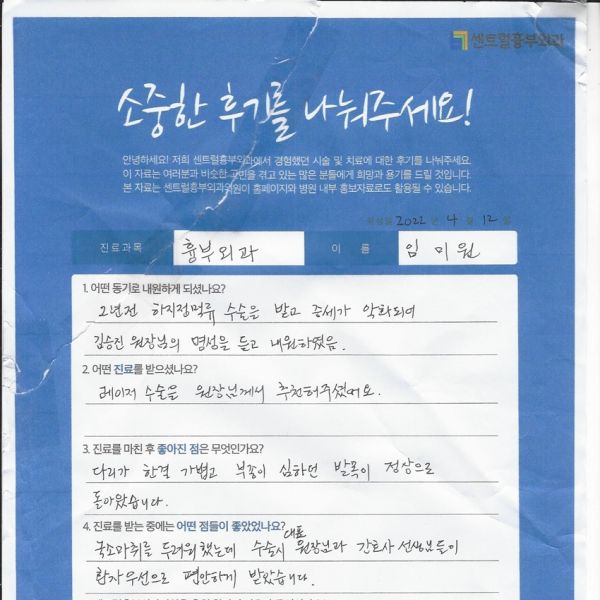 센트럴흉부외과
소중한 후기를 나눠주세요!
안녕하세요! 저희 센트럴흉부외과에서 경험했던 시술 및 치료에 대한 후기를 나눠주세요.
이 자료는 여러분과 비슷한 고민을 겪고 있는 많은 분들에게 희망과 용기를 드릴 것입니다.
본 자료는 센트럴흉부외과의원이 홈페이지와 병원 내부 홍보자료로도 활용될 수 있습니다.
작성일 2022 년 4 월 12 일
진료과목 흉부외과 이 름 임미원
1. 어떤 동기로 내원하게 되셨나요?
2년전 하지정맥류 수술을 받고 증세가 악화되어
김승진 원장님의 명성을 듣고 내원하였음.
2. 어떤 진료를 받으셨나요?
레이저 수술을 원장님께서 추천해주셨어요.
3. 진료를 마친 후 좋아진 점은 무엇인가요?
다리가 한결 가볍고 부종이 심하던 발목이 정상으로
돌아왔습니다.
4. 진료를 받는 중에는 어떤 점들이 좋았었나요?
대표
국소마취를 두려워했는데 수술시 원장님과 간호사 선생님들이
환자우선으로 편안하게 받았습니다.